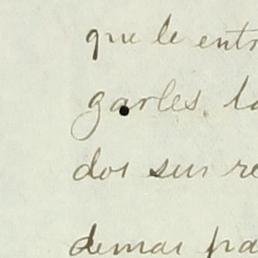 que le entr
garles, la
dos sus re
demas pa